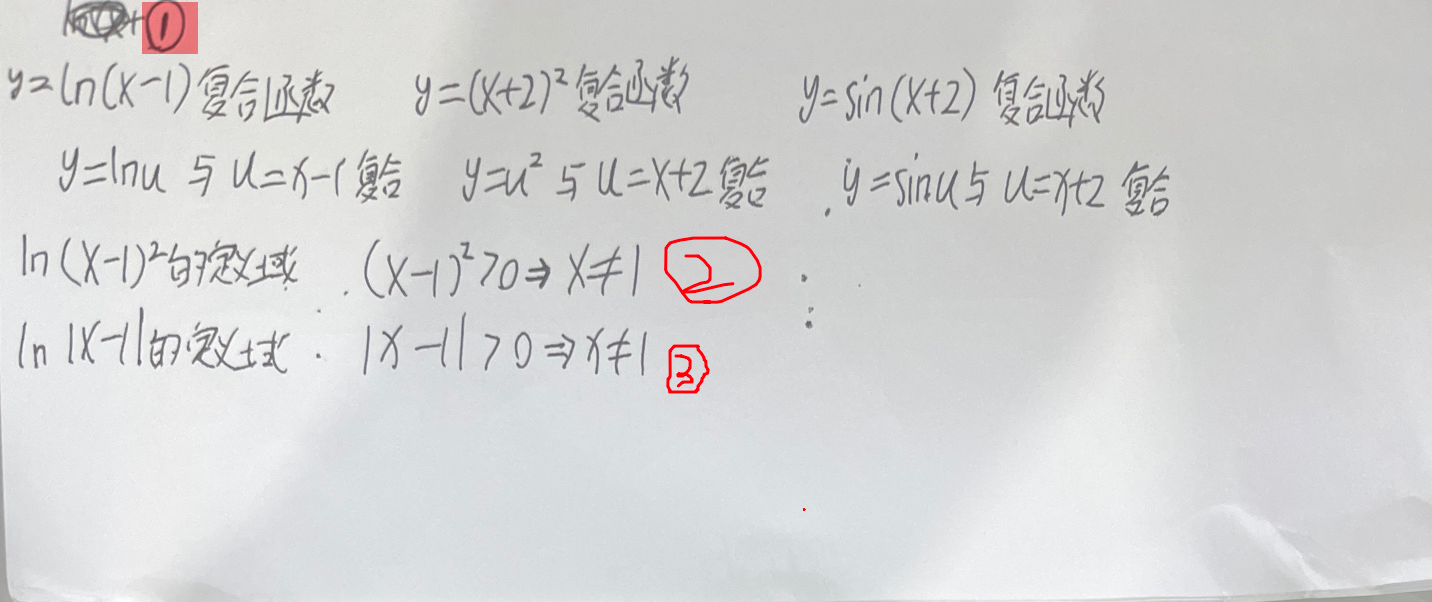 ①
y=ln(x-1)复合函数 y=(x+2)²复合函数 y=sin(x+2)复合函数
y=lnu与u=x-1复合 y=u²与u=x+2复合 y=sinu与u=x+2复合
ln(x-1)²的定义域 (x-1)²>0⇒x≠1 2
ln|x-1|的定义域: |x-1|>0⇒x≠1 3